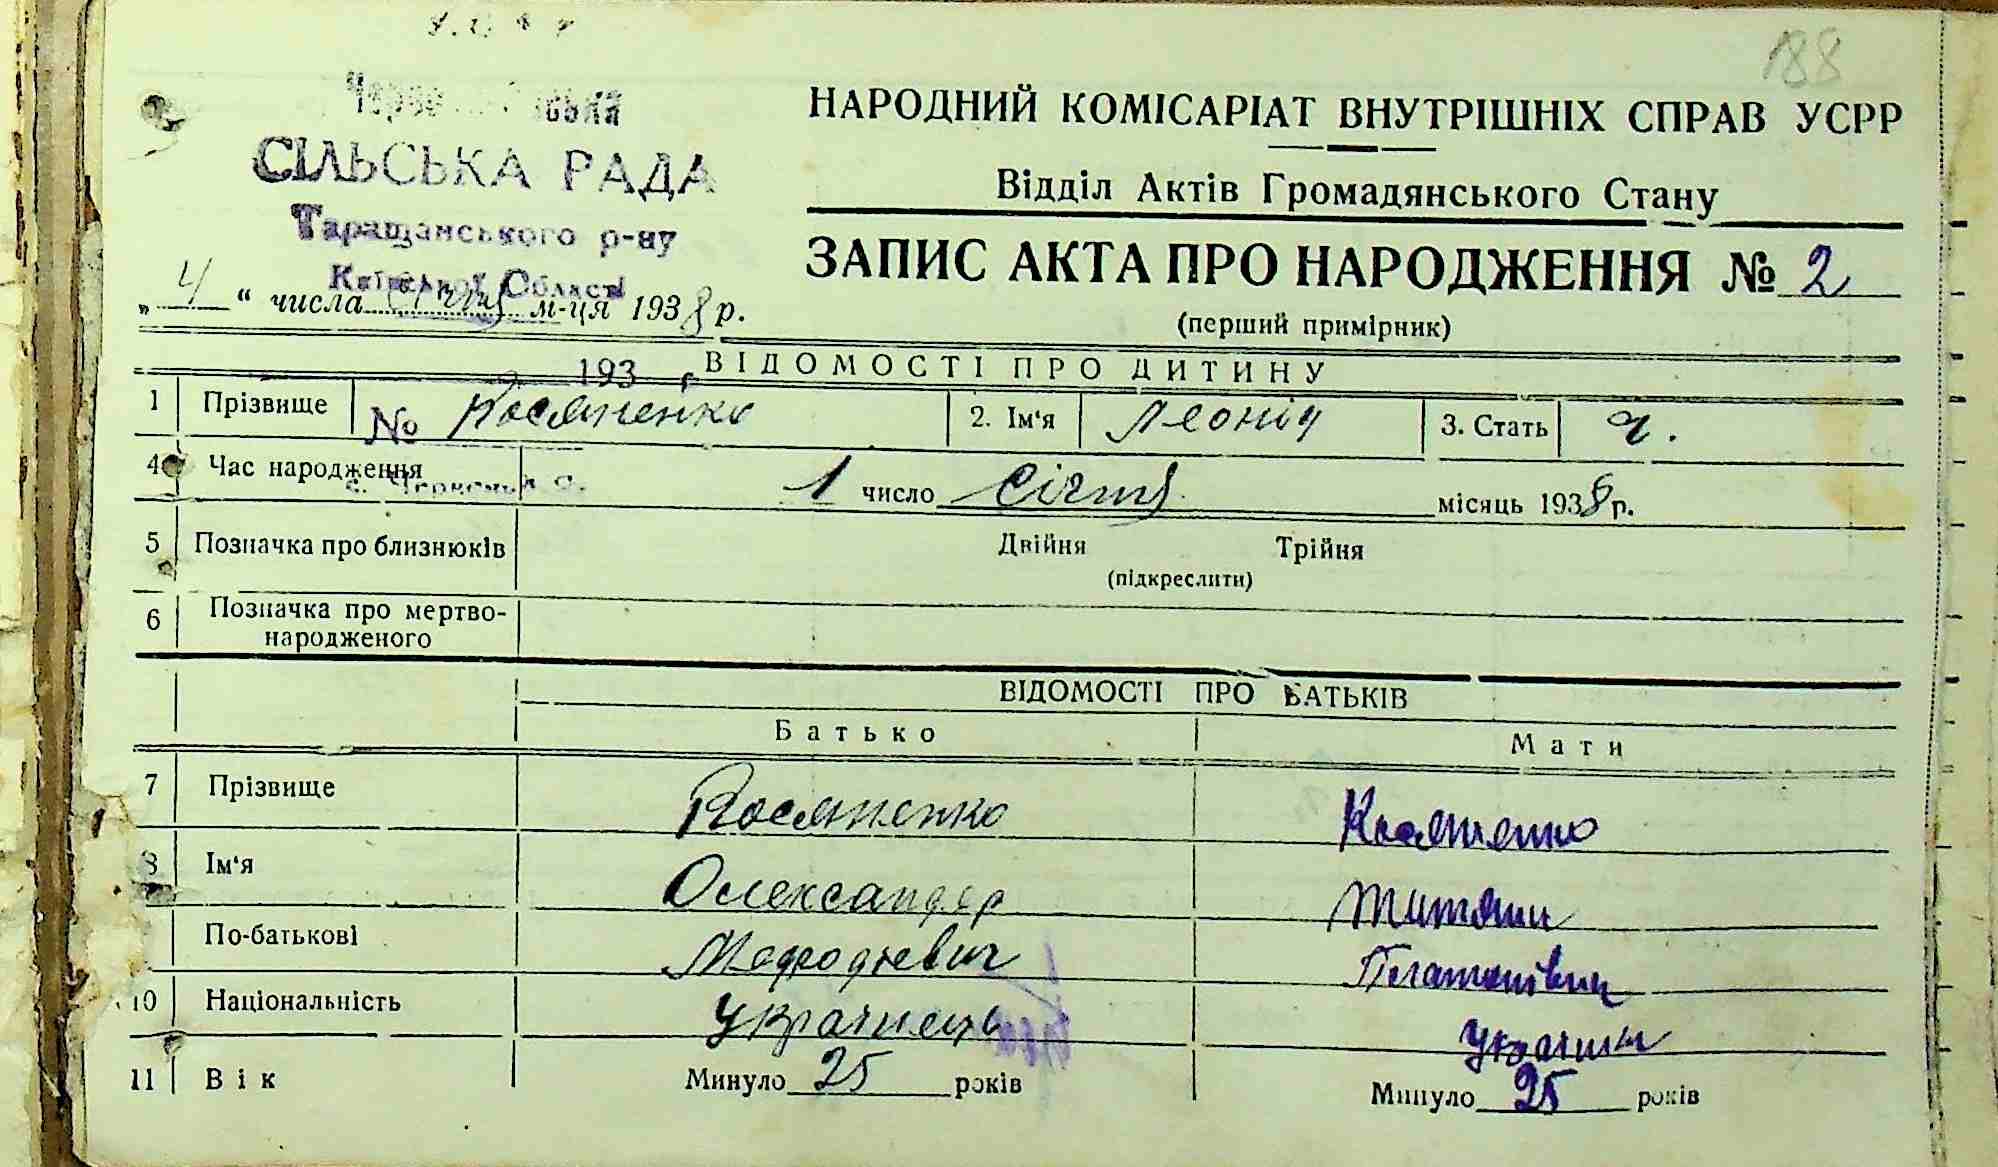 188
СІЛЬСЬКА РАДА
Таращанського р-ну
Київської Області
НАРОДНИЙ КОМІСАРІАТ ВНУТРІШНІХ СПРАВ УСРР
Відділ Актів Громадянського Стану
ЗАПИС АКТА ПРО НАРОДЖЕННЯ № 2
(перший примірник)
„ 4 “ числа січня м-ця 1938 р.
193 р.
ВІДОМОСТІ ПРО ДИТИНУ
1 Прізвище № Косяненко 2. Ім‘я Леонід 3. Стать ч.
4 Час народження 1 число Січня місяць 1938 р.
5 Позначка про близнюків Двійня Трійня
(підкреслити)
6 Позначка про мертво-
народженого
ВІДОМОСТІ ПРО БАТЬКІВ
Батько Мати
7 Прізвище Косяненко Косяненко
8 Ім‘я Олександер
По-батькові Мефодієвич Платонівна
10 Національність Українець Українка
11 Вік Минуло 25 років Минуло 25 років